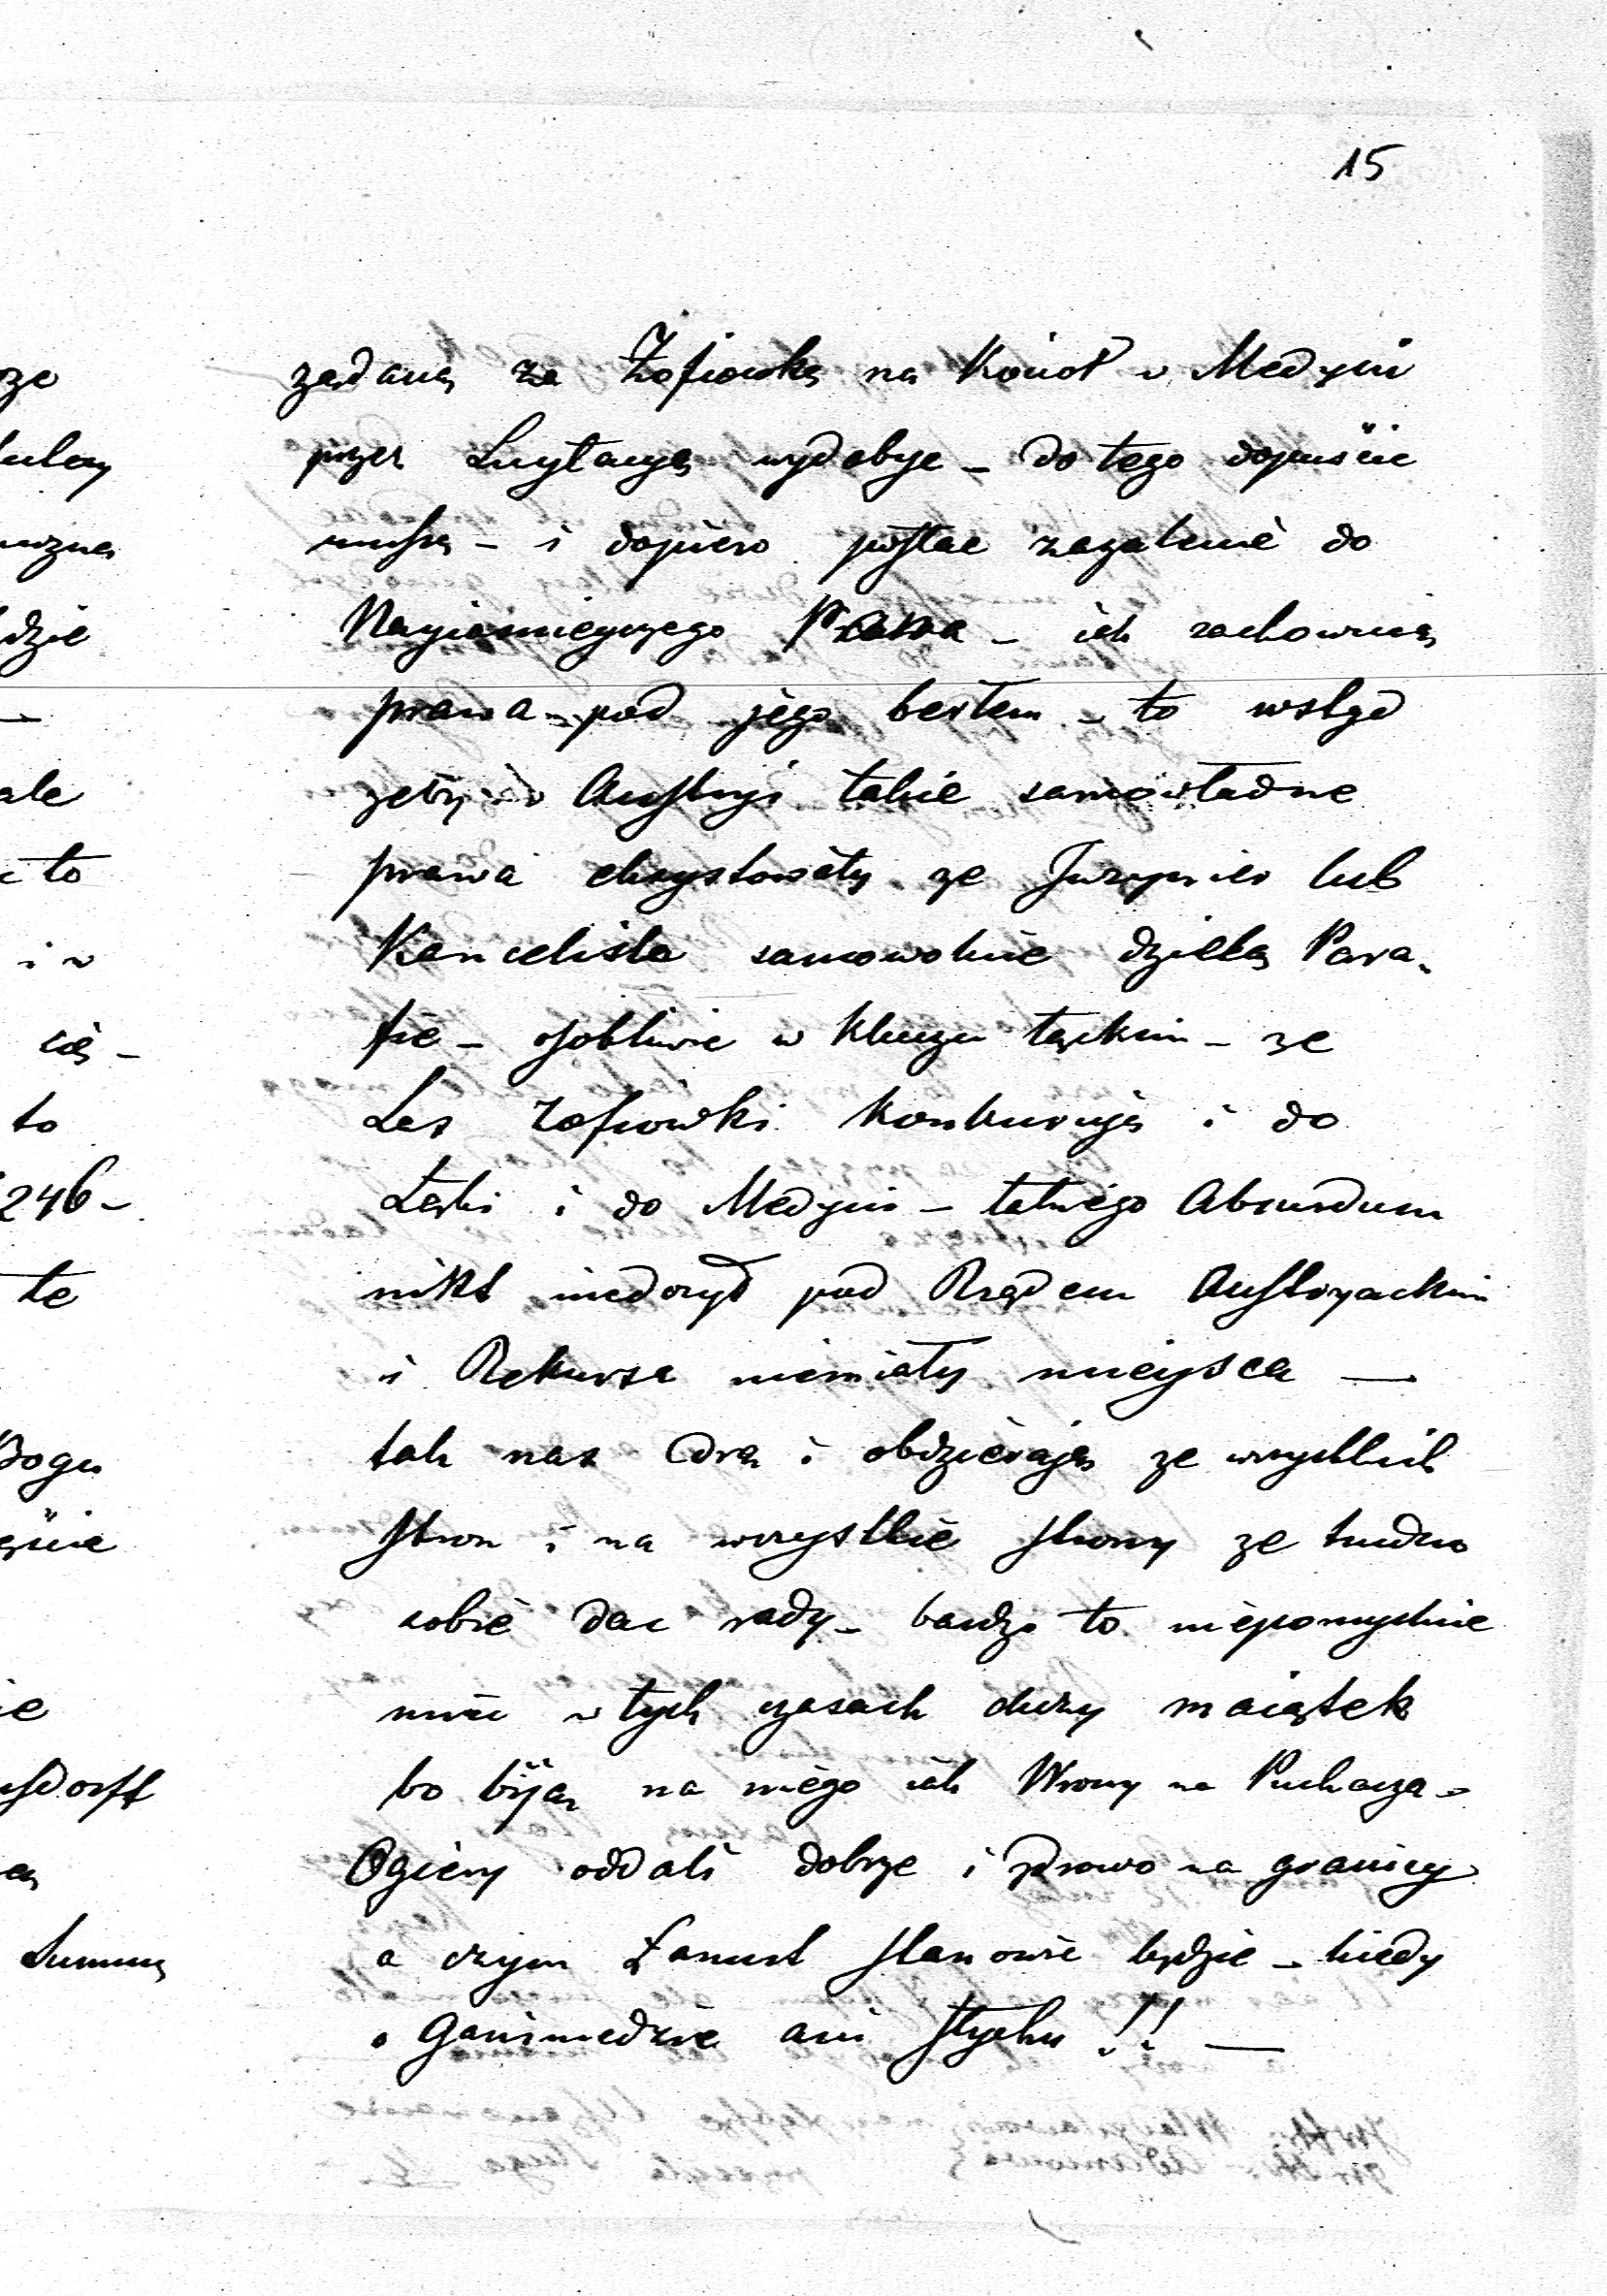 15
żądaną za Zofiowką na Kościoł w Medyni
przez Licytacyą wydobyc - do tego dopuścic
muszą - i dopiero posłac zazalenie do
Nayiasnieyszego Prawa - iak zachowuią
prawa - pod jego berłem - to wstyd
zeby w Austryi takie samowładne
prawa eksystowały ze Juzynier lub
Kancelista samowolnie dzielą Para-
fie - osobliwie w kluczu Łąckim - ze
Las Zofiowki konkurują i do
Łąki i do Medyni - takiego Absurdum
nikt niedozył pod Rządem Austryackim
i Rekursa niemiały mieysca —
tak nas drą i obdzierają ze wszystkich
stron i na wszystkie strony ze trudno
sobie dac rady - bardzo to niepomyslnie
miec w tych czasach duzy maiątek
bo biją na niego iak Wrony na Puchacza -
Ogiery oddali dobrze i zdrowo na granicy
a czym Łancut stanowic będzie - kiedy
o Ganimedzie ani słychu !! —
ze
ale
to
i w
się -
to
246 -
te
Bogu
ie
sdorff
Summą